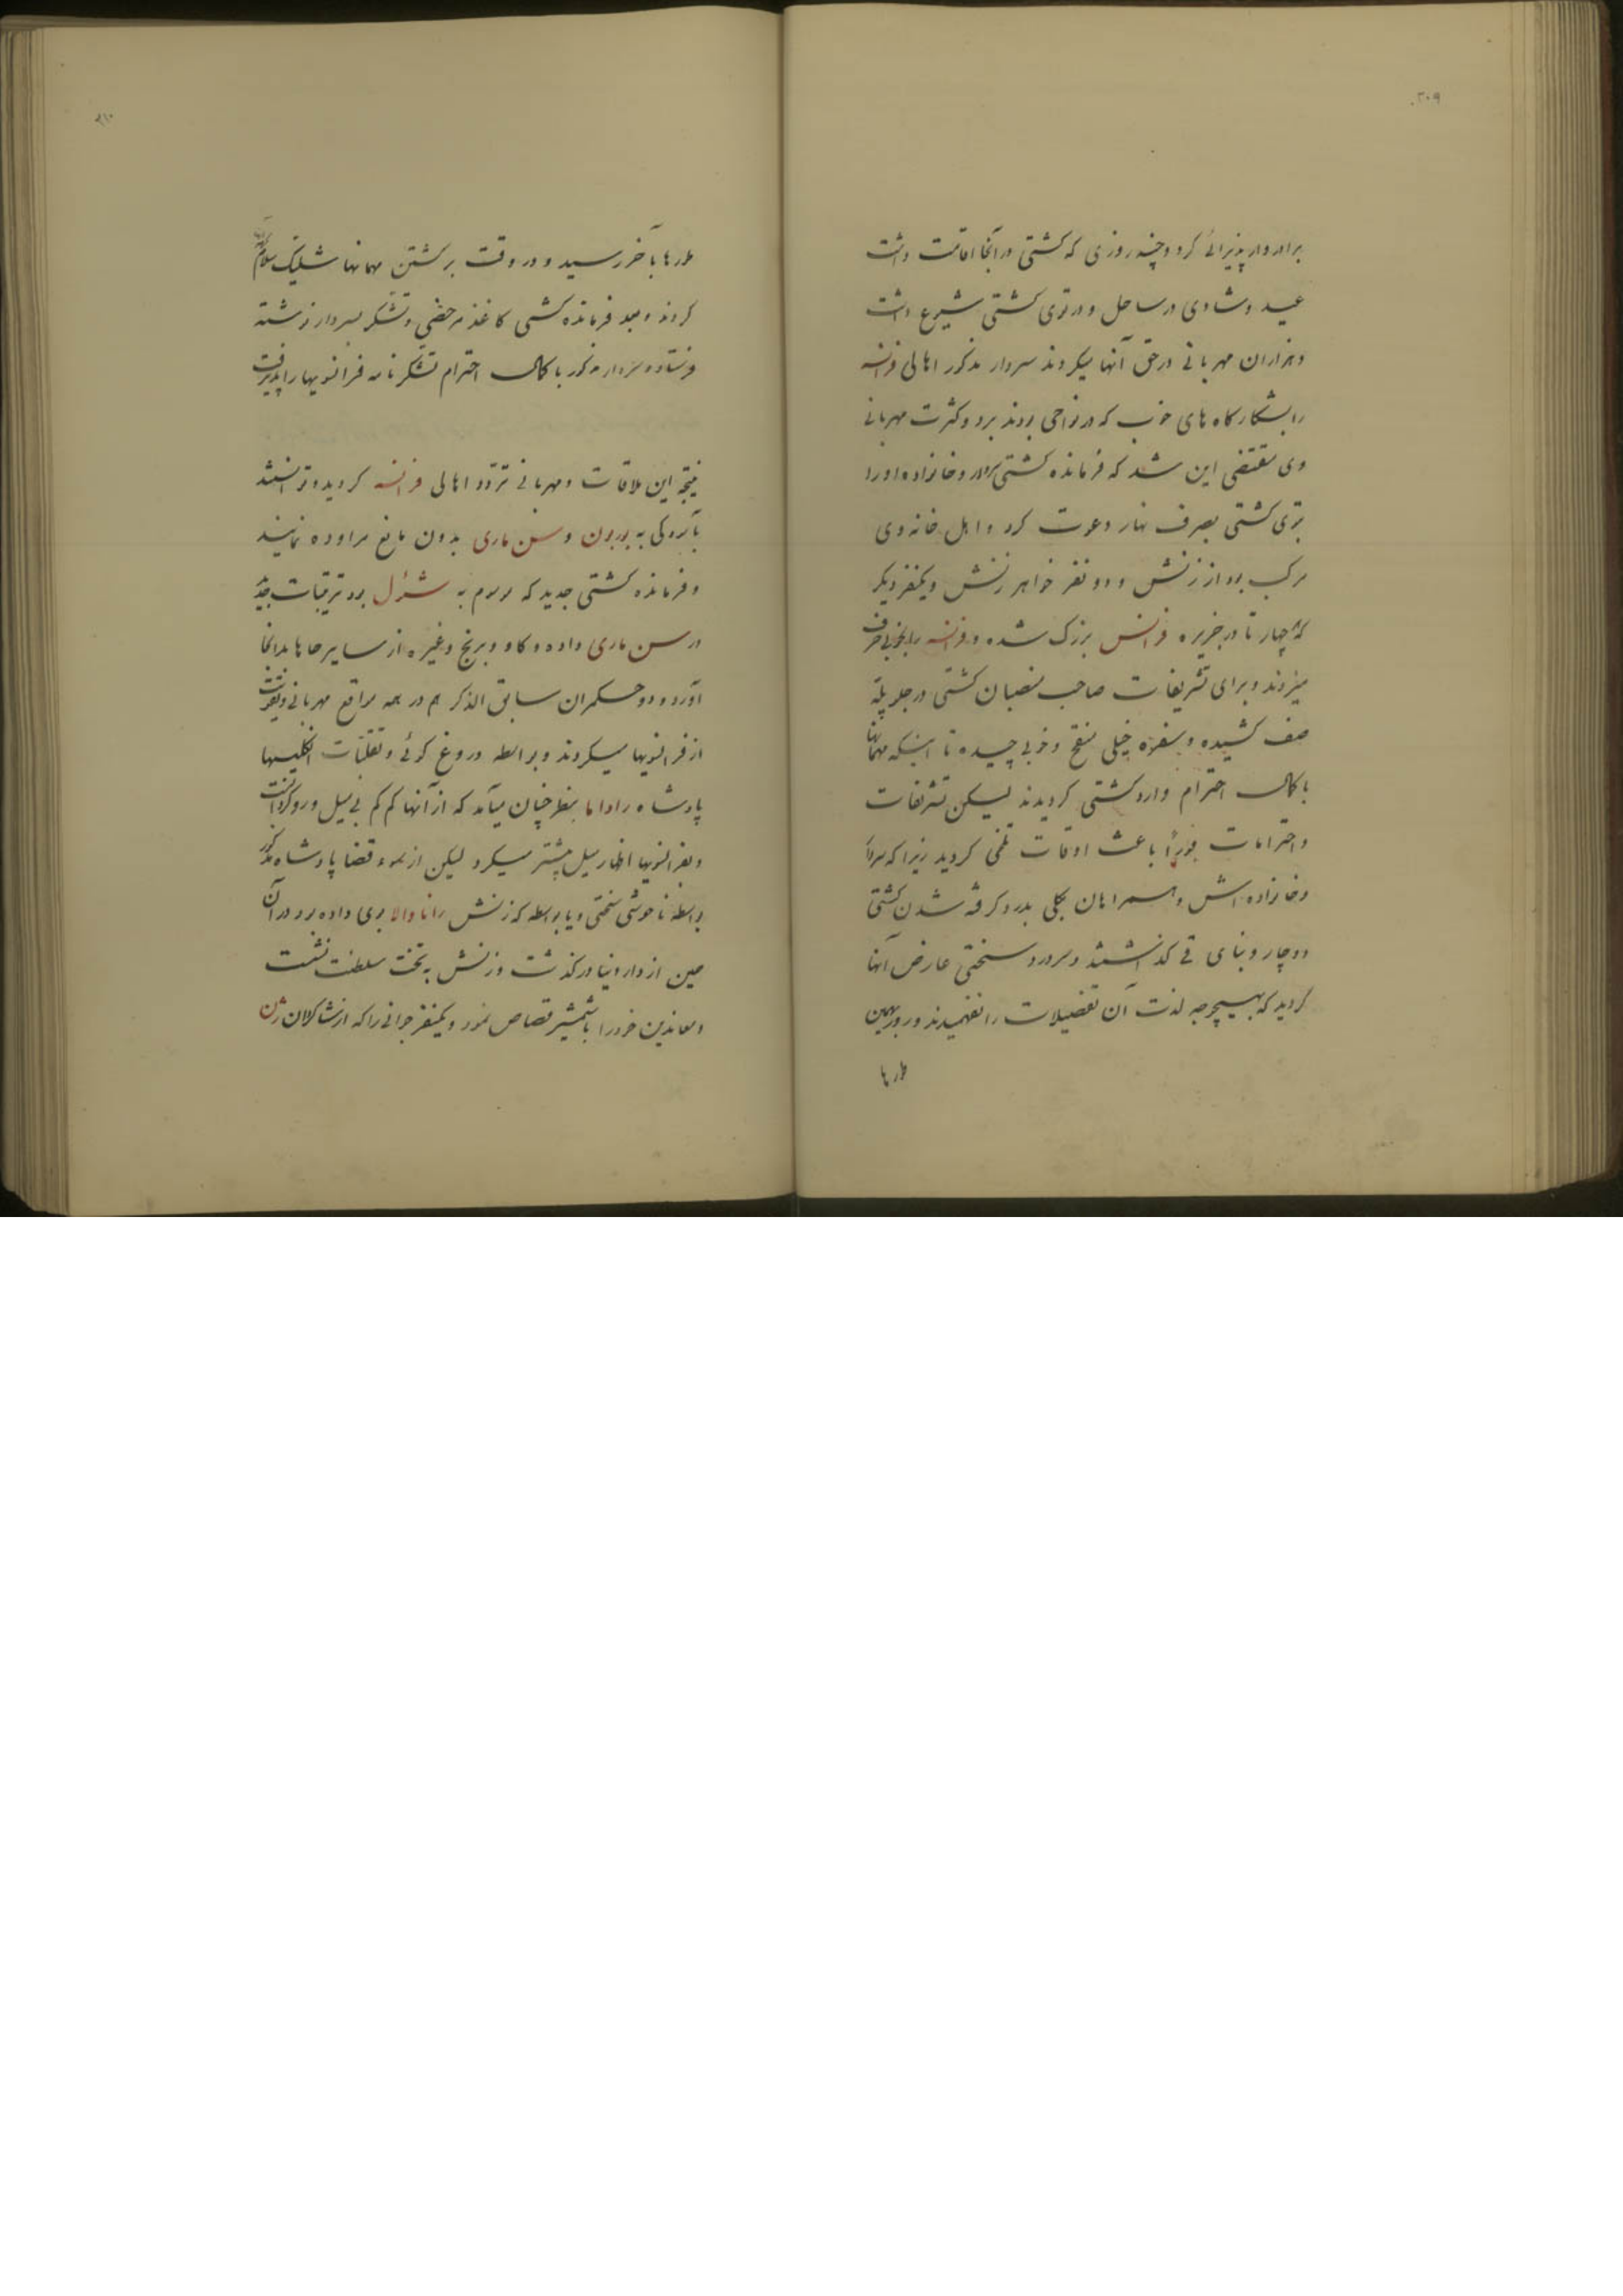 ۲۰۹
برادروار پذیرائی کرد و چند روزی که کشتی در آنجا اقامت داشت
عید و شادی در ساحل و در توی کشتی شیوع داشت
و هزاران مهربانی در حق آنها میکردند سردار مذکور اهالی فرانسه
را بشکارگاه های خوب که در نواحی بودند برد و کثرت مهربانی
وی مقتضی این شد که فرمانده کشتی سردار و خانواده او را
بتوی کشتی بصرف نهار دعوت کرد و اهل خانه وی
مرکب بود از زنش و دو نفر خواهر زنش و یکنفر دیگر
که چهار تا در جزیره فرانس بزرگ شده و فرانسه را بخوبی حرف
میزدند و برای تشریفات صاحب منصبان کشتی در جلو پله
صف کشیده و سفره خیلی منقح و خوبی چیده تا اینکه مهمانها
با کمال احترام وارد کشتی گردیدند لیکن تشریفات
و احترامات فوراً باعث اوقات تلخی گردید زیرا که سردار
و خانواده اش و همراهان بکلی بدرد گرفته شدن کشتی
دوچار و بنای قی گذاشتند و سردرد سختی عارض آنها
گردید که بهیچوجه لذت آن تفضیلات را نفهمیدند و روز بهمین
طورها
۲۱۰
طورها بآخر رسید و در وقت برگشتن مهمانها شلیک سلام
کردند و بعد فرمانده کشتی کاغذ مرخصی و تشکر بسردار نوشته
فرستاد و سردار مذکور با کمال احترام تشکر نامه فرانسویها را پذیرفت
نتیجه این ملاقات و مهربانی تردّد اهالی فرانسه گردید و توانستند
بآسودگی به بوربون و سن ماری بدون مانع مراوده نمایند
و فرمانده کشتی جدید که موسوم به شوُل بود ترتیبات جدید
در سن ماری داده و گاو و برنج و غیره از سایر جاها بدانجا
آورد و دو حکمران سابق الذکر هم در همه مواقع مهربانی و تقویت
از فرانسویها میکردند و بواسطه دروغ گوئی و تقلبات انگلیسها
پادشاه راداما بنظر چنان میآمد که از آنها کم کم بی میل و روگردانست
و بفرانسویها اظهار میل بیشتر میکرد لیکن از سوء قضا پادشاه مذکور
بواسطه ناخوشی سختی و یا بواسطه که زنش راناوالا بوی داده بود در آن
حین از دار دنیا درگذشت و زنش به تخت سلطنت نشست
و معاندین خود را با شمشیر قصاص نمود و یکنفر جوانی را که از شاگردان ژن